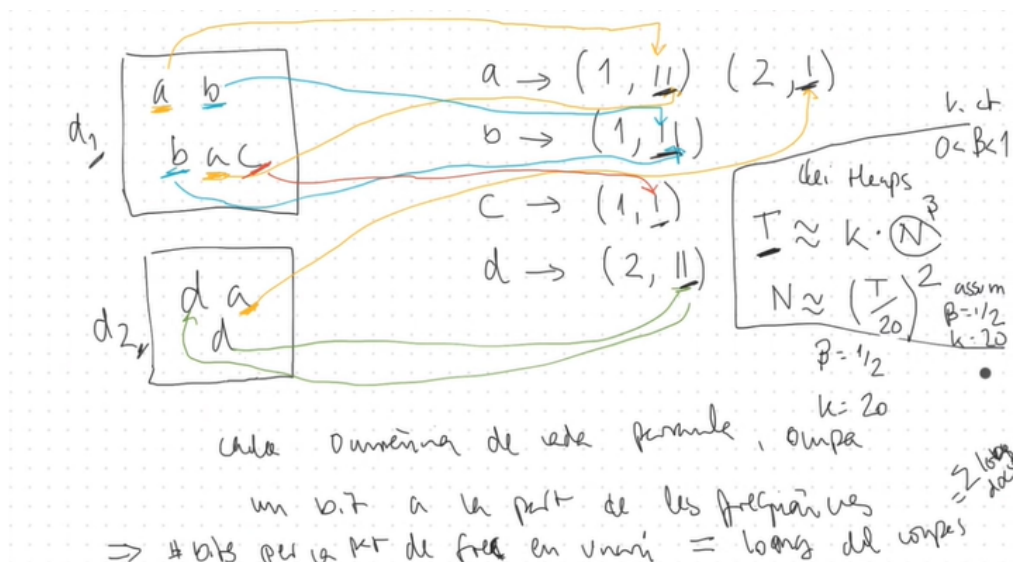 a b
b a c
d₁
a → (1, 11) (2, 1)
b → (1, 11)
c → (1, 1)
d → (2, 11)
d a
d
d₂
k. ct.
0 < β < 1
Llei Heaps
T ≈ k · N^β
N ≈ (T/20)²
assum
β = 1/2
k = 20
β = 1/2
k = 20
cada ocurrència de cada paraula, ocupa
un bit a la part de les freqüències
⇒ # bits per la part de freq en unari = long del corpus
= Σ long docs